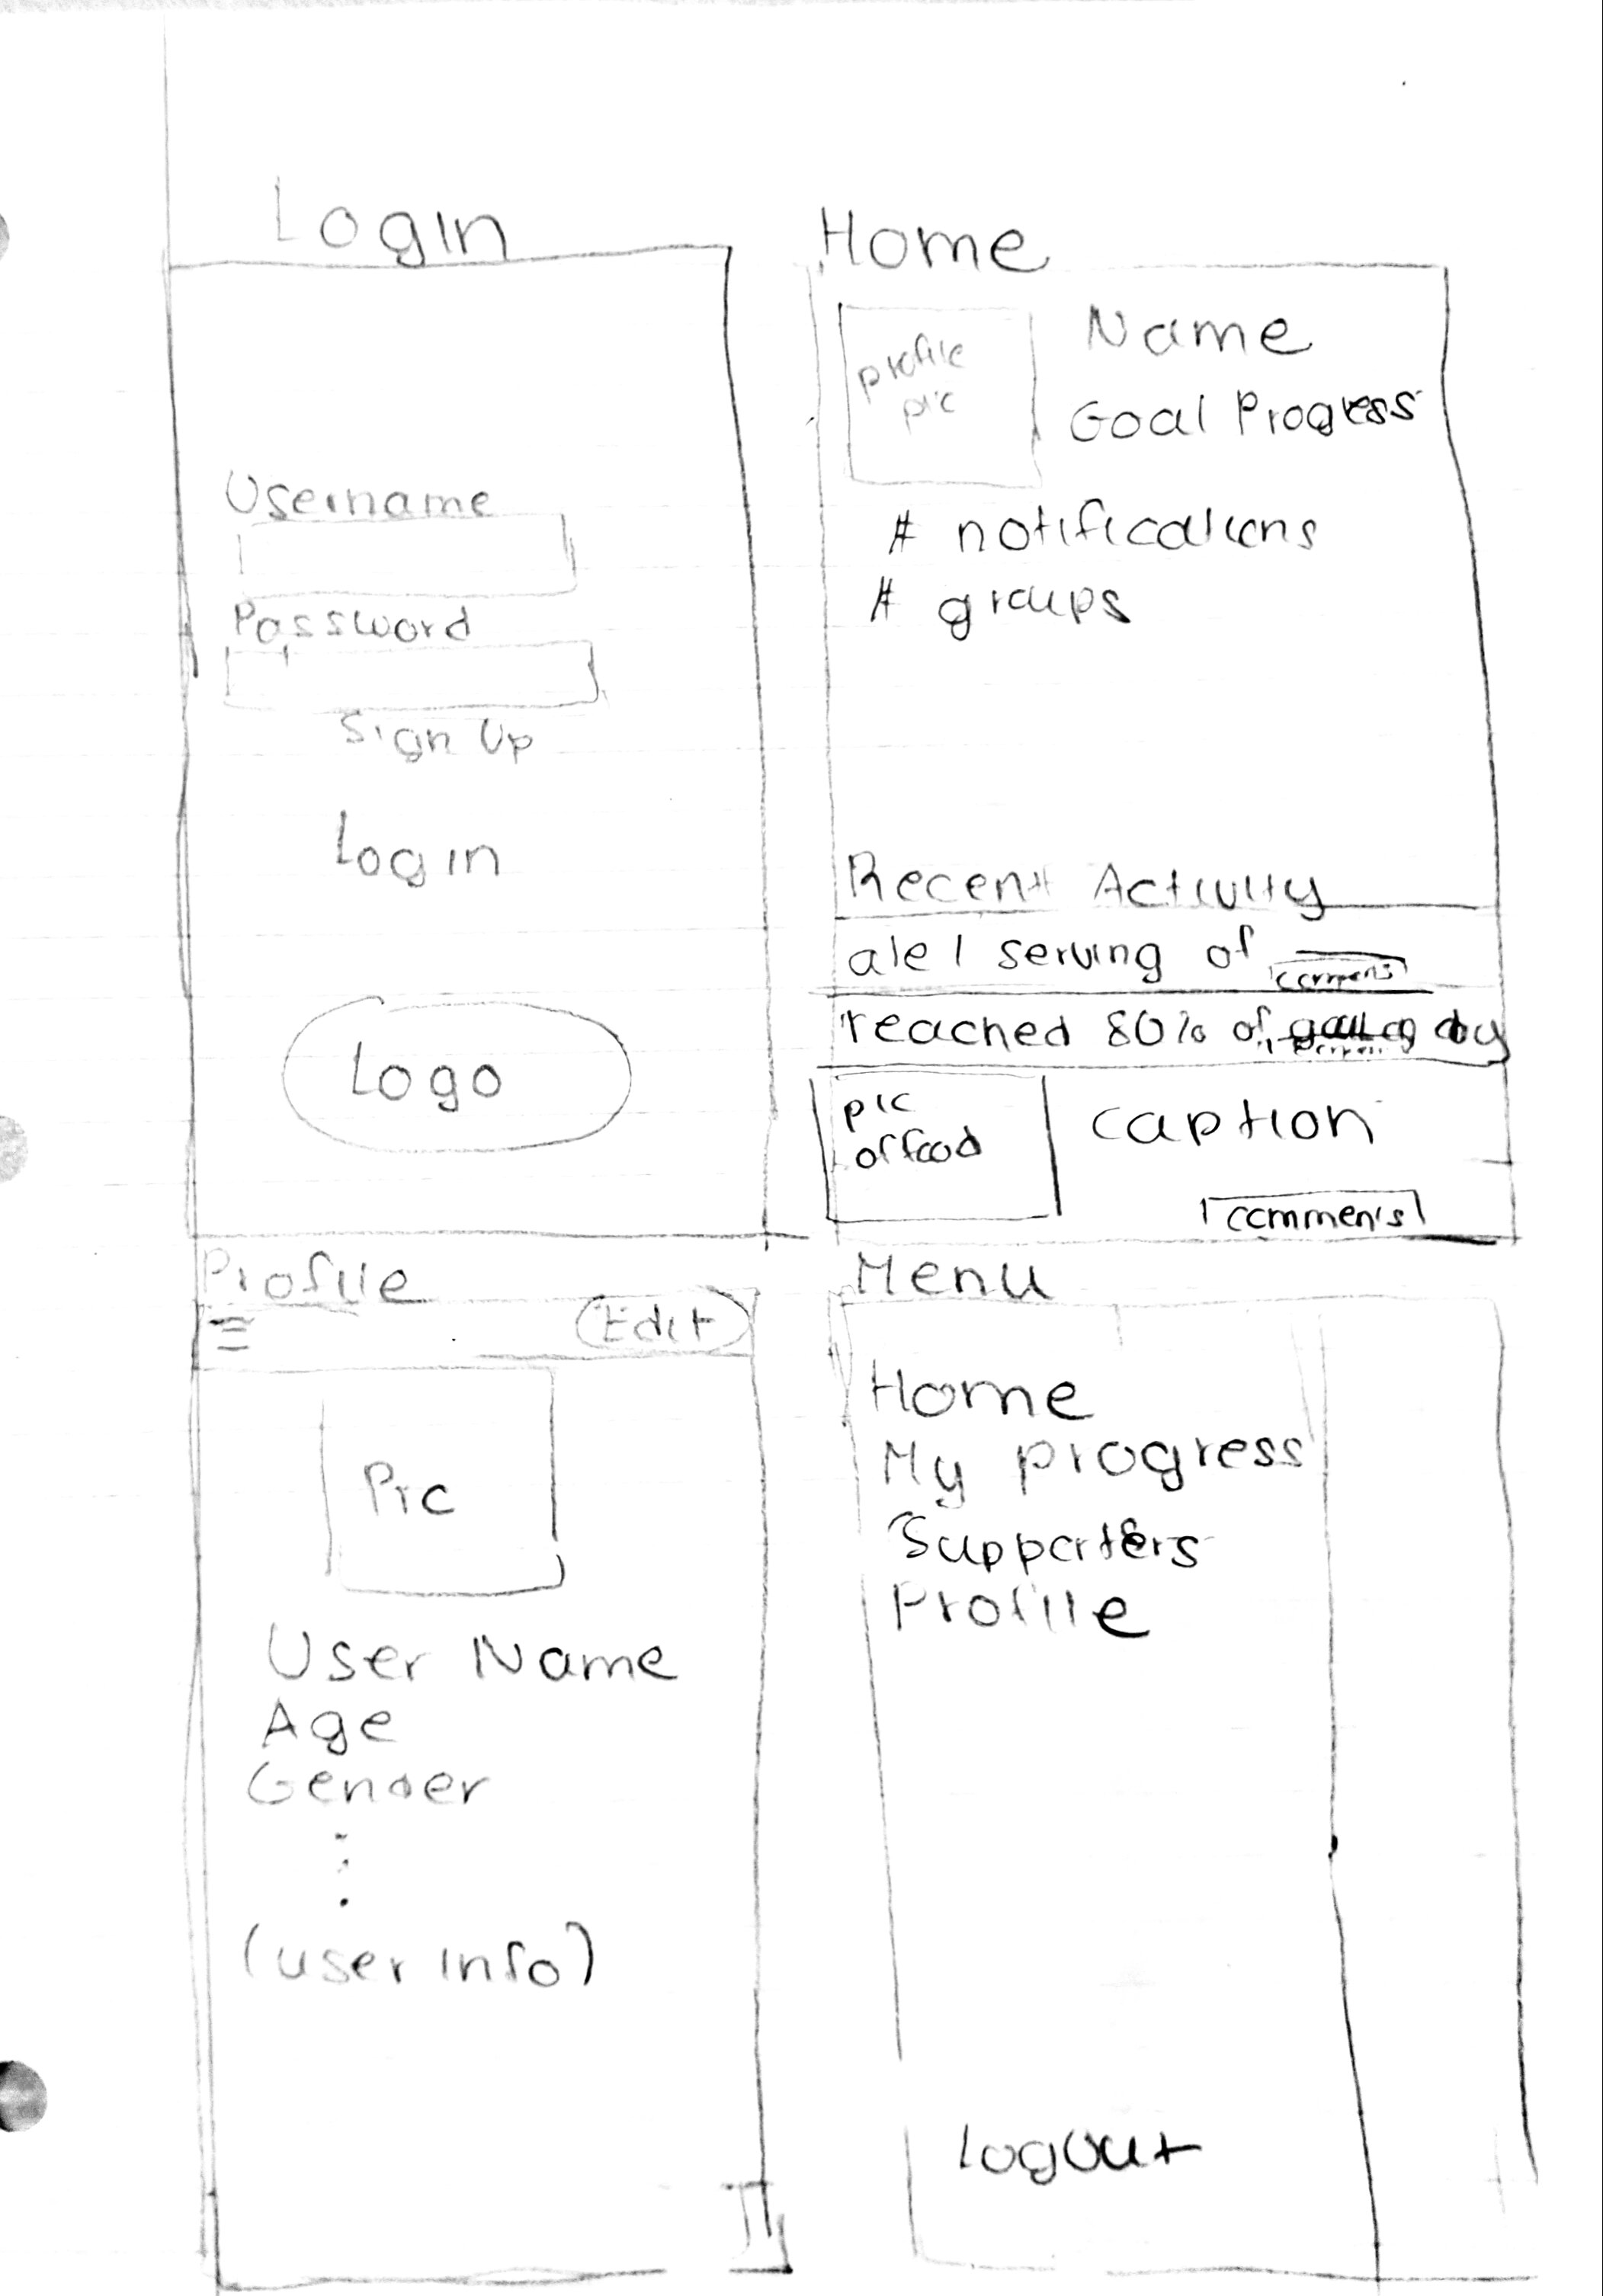 Login
Username
Password
Sign Up
Login
Logo
Home
profile
pic
Name
Goal Progress
# notifications
# groups
Recent Activity
ate 1 serving of
comments
reached 80% of
pic
of food
caption
comments
Profile
Edit
Pic
User Name
Age
Gender
(user info)
Menu
Home
My progress
Supporters
Profile
logout